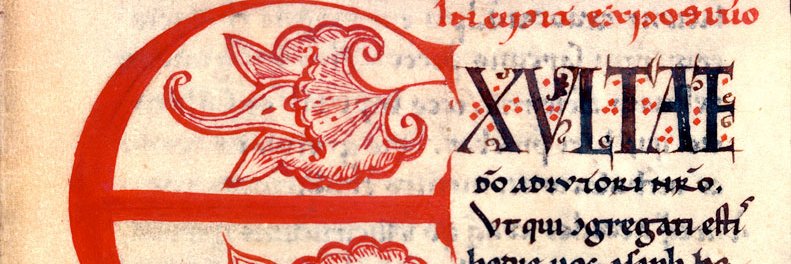 Incipit expositio
EXVLTATE
dō adiutori nrō.
Ut qui ↄgregati esti